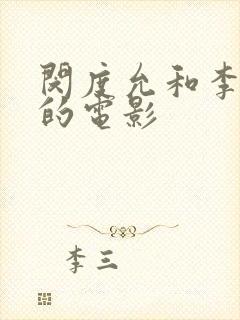 閔度允和李
的電影
李三